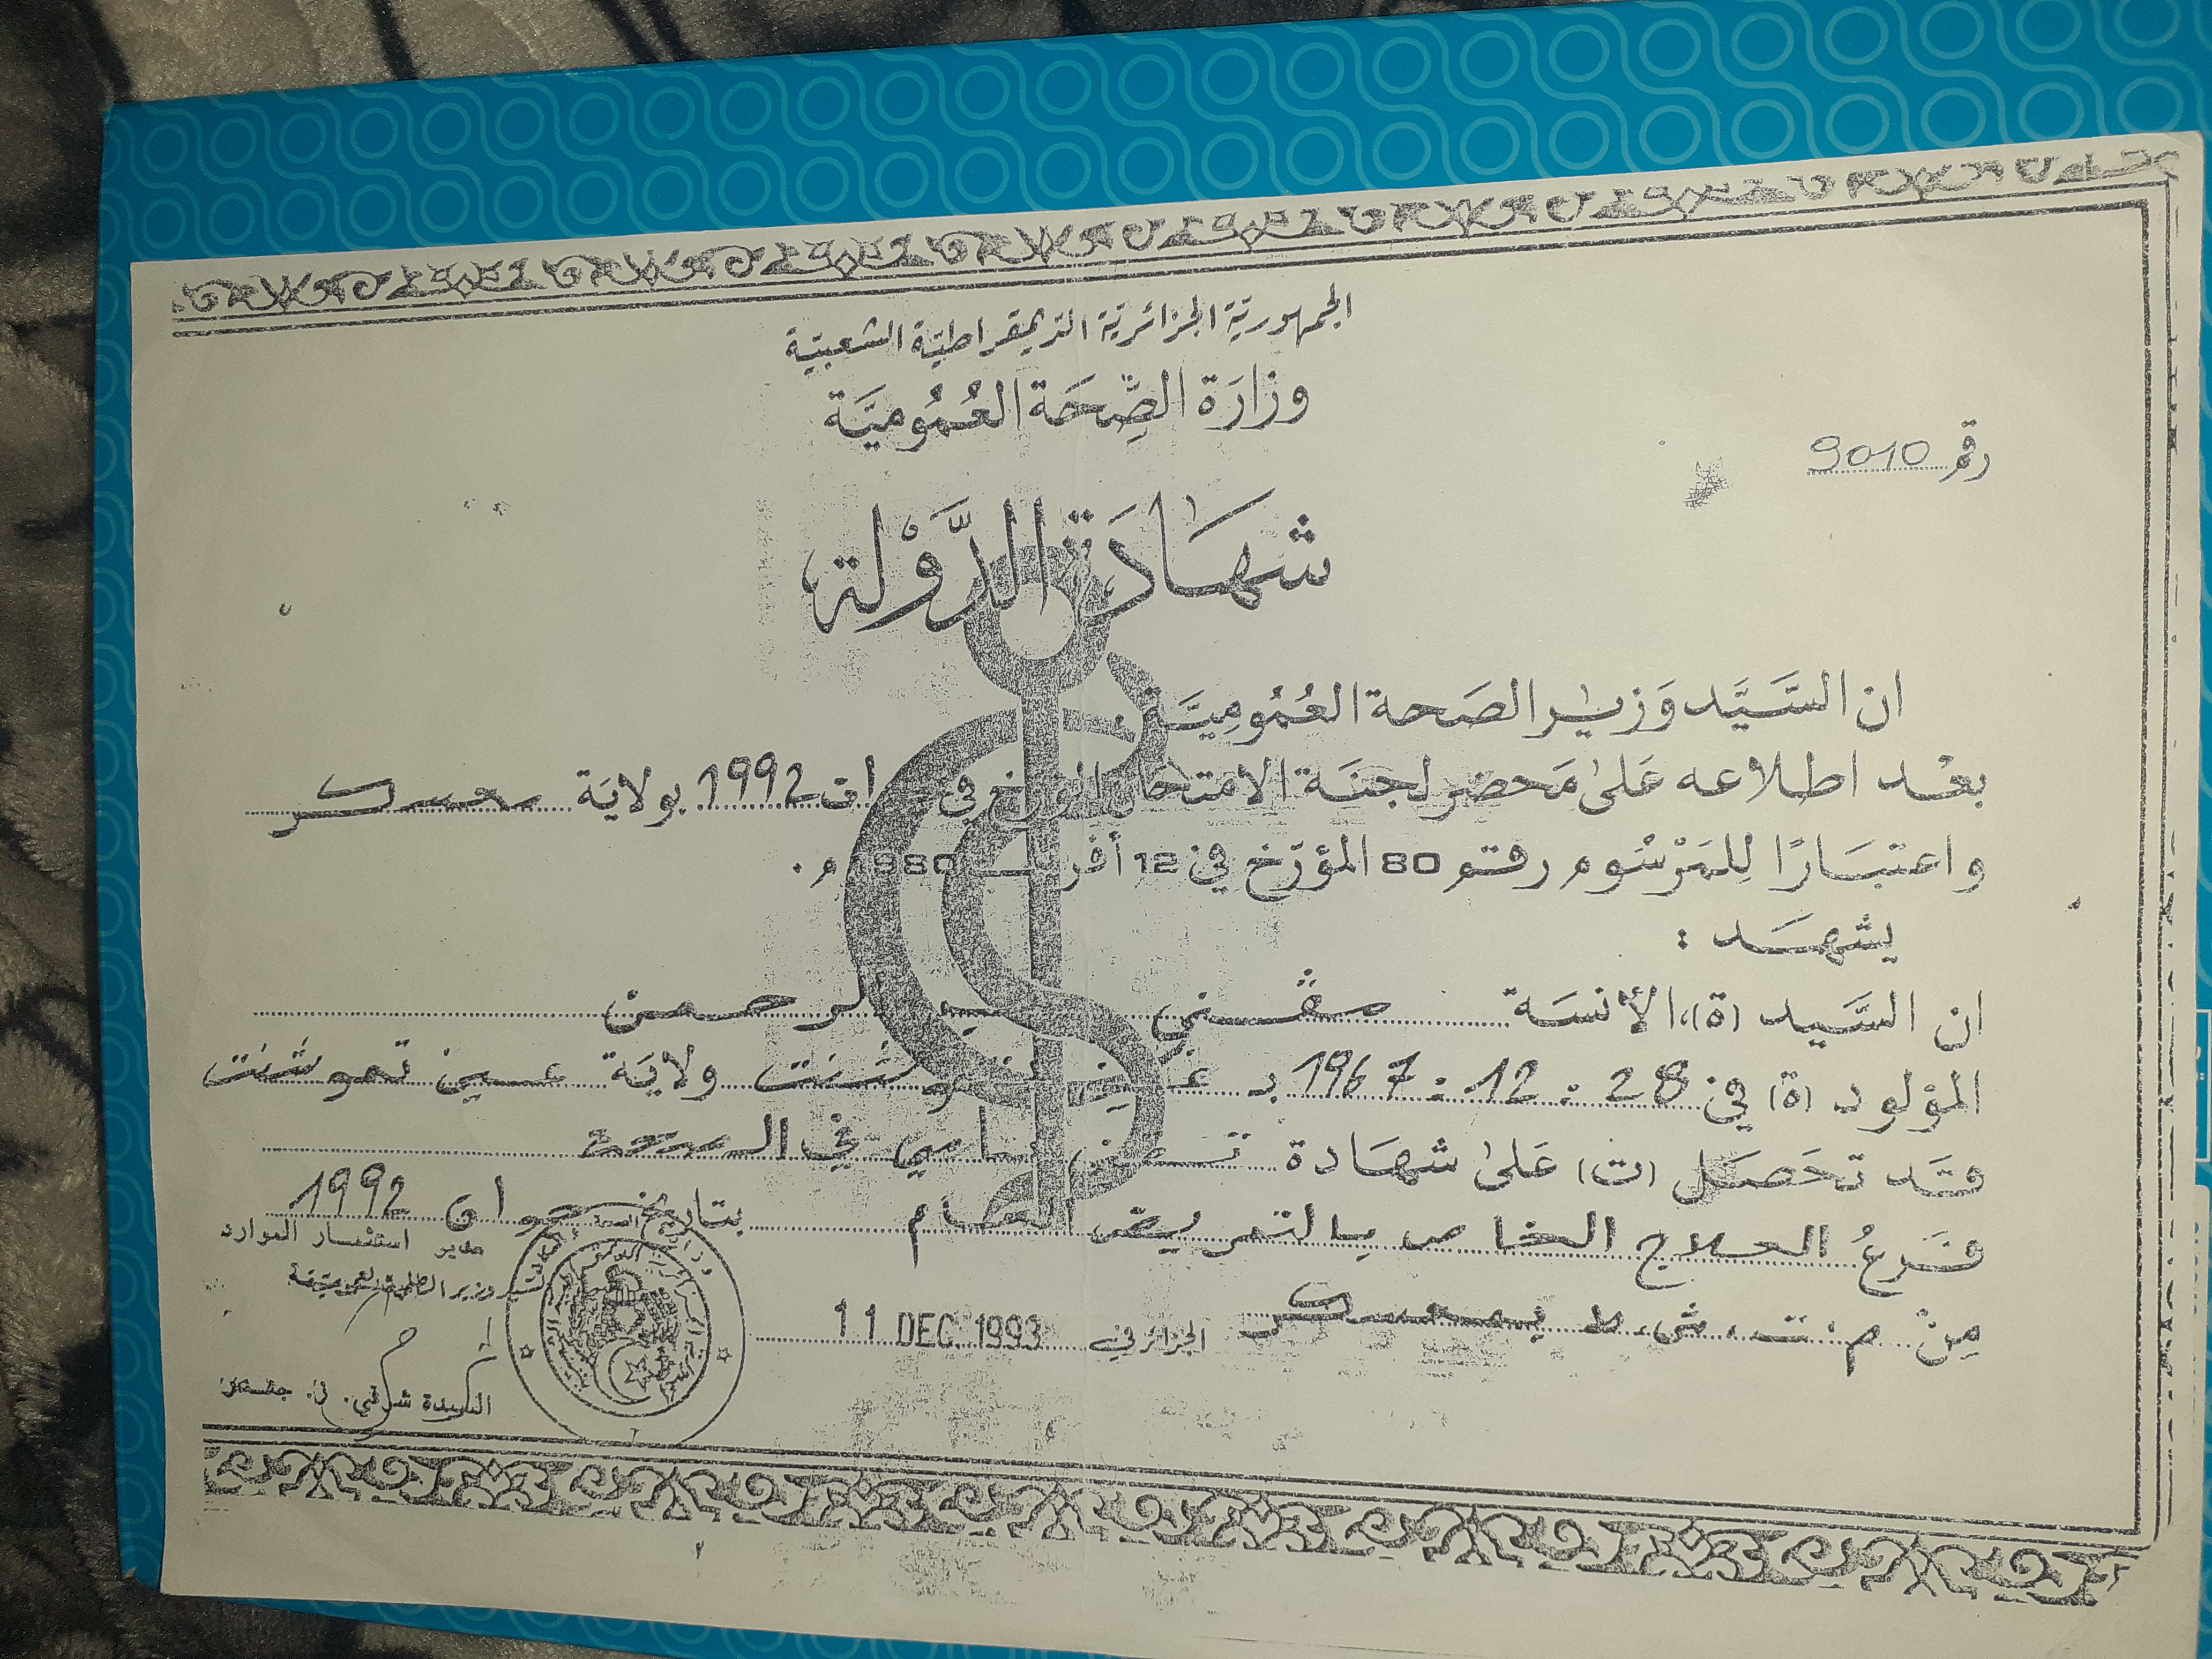 الجمهورية الجزائرية الديمقراطية الشعبية
وزارة الصِّحَة العُمُوميَّة
رقم 9010
شهَادَة الدَّوْلة
ان السَّيَّد وَزير الصَحة العُمُوميَّة،
بعْد اطلاعه عَلىٰ مَحضر لجنَة الامتحان المؤرخ في جوان 1992 بولايَة معسكر
واعتبَارًا لِلمَرْسُوم رقم 80 المؤرّخ في 12 أفريل 1980 م.
يشهَد :
ان السَّيد (ة)، الأنسَة مقني عبد الرحمن
المؤلود (ة) في 28 . 12 . 1967 بـ عين تموشنت ولايَة عين تموشنت
وقَد تحَصَل (ت) عَلىٰ شهَادة تقني سامي في الصحة
فَرعُ العلاج الخاص بالتمريض العام بتاريخ جوان 1992
مِنْ م. ت. ش. ط بمعسكر الجزائر في 11 DEC. 1993
مدير استثمار الموارد
السيدة شرقي. ن.